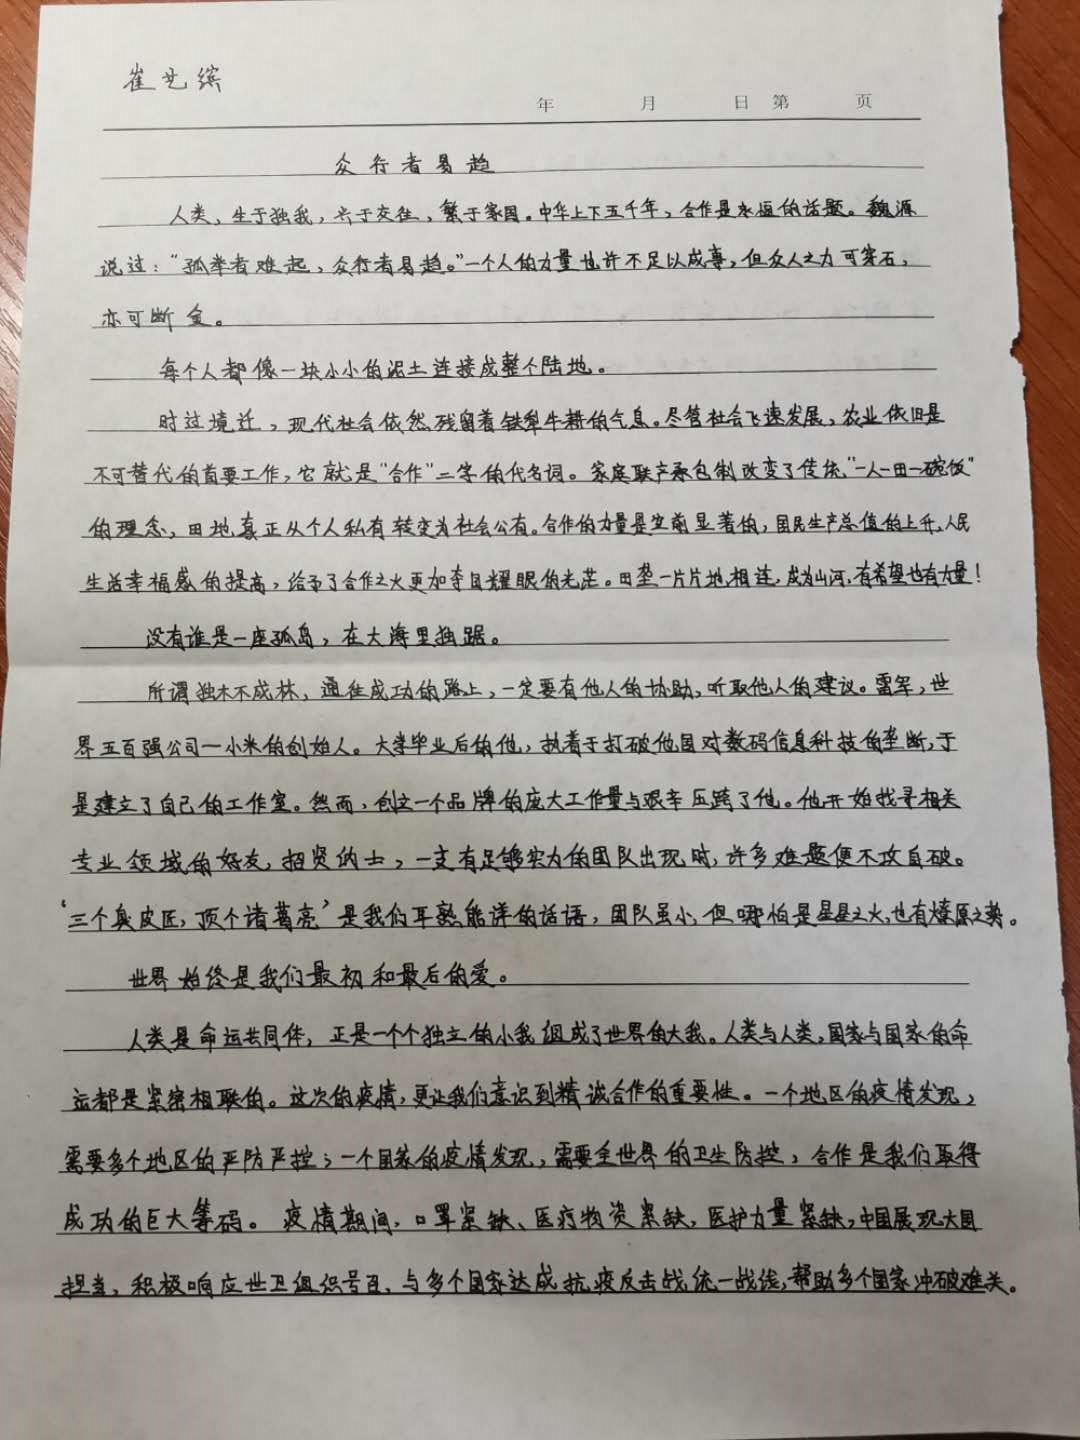 崔艺缤
年 月 日 第 页
众行者易趋
人类，生于独我，兴于交往，繁于家国。中华上下五千年，合作是永恒的话题。魏源
说过：“孤举者难起，众行者易趋。”一个人的力量也许不足以成事，但众人之力可穿石，
亦可断金。
每个人都像一块小小的泥土连接成整个陆地。
时过境迁，现代社会依然残留着铁犁牛耕的气息。尽管社会飞速发展，农业依旧是
不可替代的首要工作，它就是“合作”二字的代名词。家庭联产承包制改变了传统“一人一田一碗饭”
的理念，田地真正从个人私有转变为社会公有。合作的力量是空前显著的，国民生产总值的上升，人民
生活幸福感的提高，给予了合作之火更加夺目耀眼的光芒。田垄一片片地相连，成为山河，有希望也有力量！
没有谁是一座孤岛，在大海里独踞。
所谓独木不成林，通往成功的路上，一定要有他人的协助，听取他人的建议。雷军，世
界五百强公司一小米的创始人。大学毕业后的他，执着于打破他国对数码信息科技的垄断，于
是建立了自己的工作室。然而，创立一个品牌的庞大工作量与艰辛压跨了他。他开始找寻相关
专业领域的好友，招贤纳士，一支有足够实力的团队出现时，许多难题便不攻自破。
‘三个臭皮匠，顶个诸葛亮’是我们耳熟能详的话语，团队虽小，但哪怕是星星之火，也有燎原之势。
世界始终是我们最初和最后的爱。
人类是命运共同体，正是一个个独立的小我组成了世界的大我。人类与人类，国家与国家的命
运都是紧密相联的。这次的疫情，更让我们意识到精诚合作的重要性。一个地区的疫情发现，
需要多个地区的严防严控；一个国家的疫情发现，需要全世界的卫生防控，合作是我们取得
成功的巨大筹码。疫情期间，口罩紧缺、医疗物资紧缺，医护力量紧缺，中国展现大国
担当，积极响应世卫组织号召，与多个国家达成抗疫反击战统一战线，帮助多个国家冲破难关。